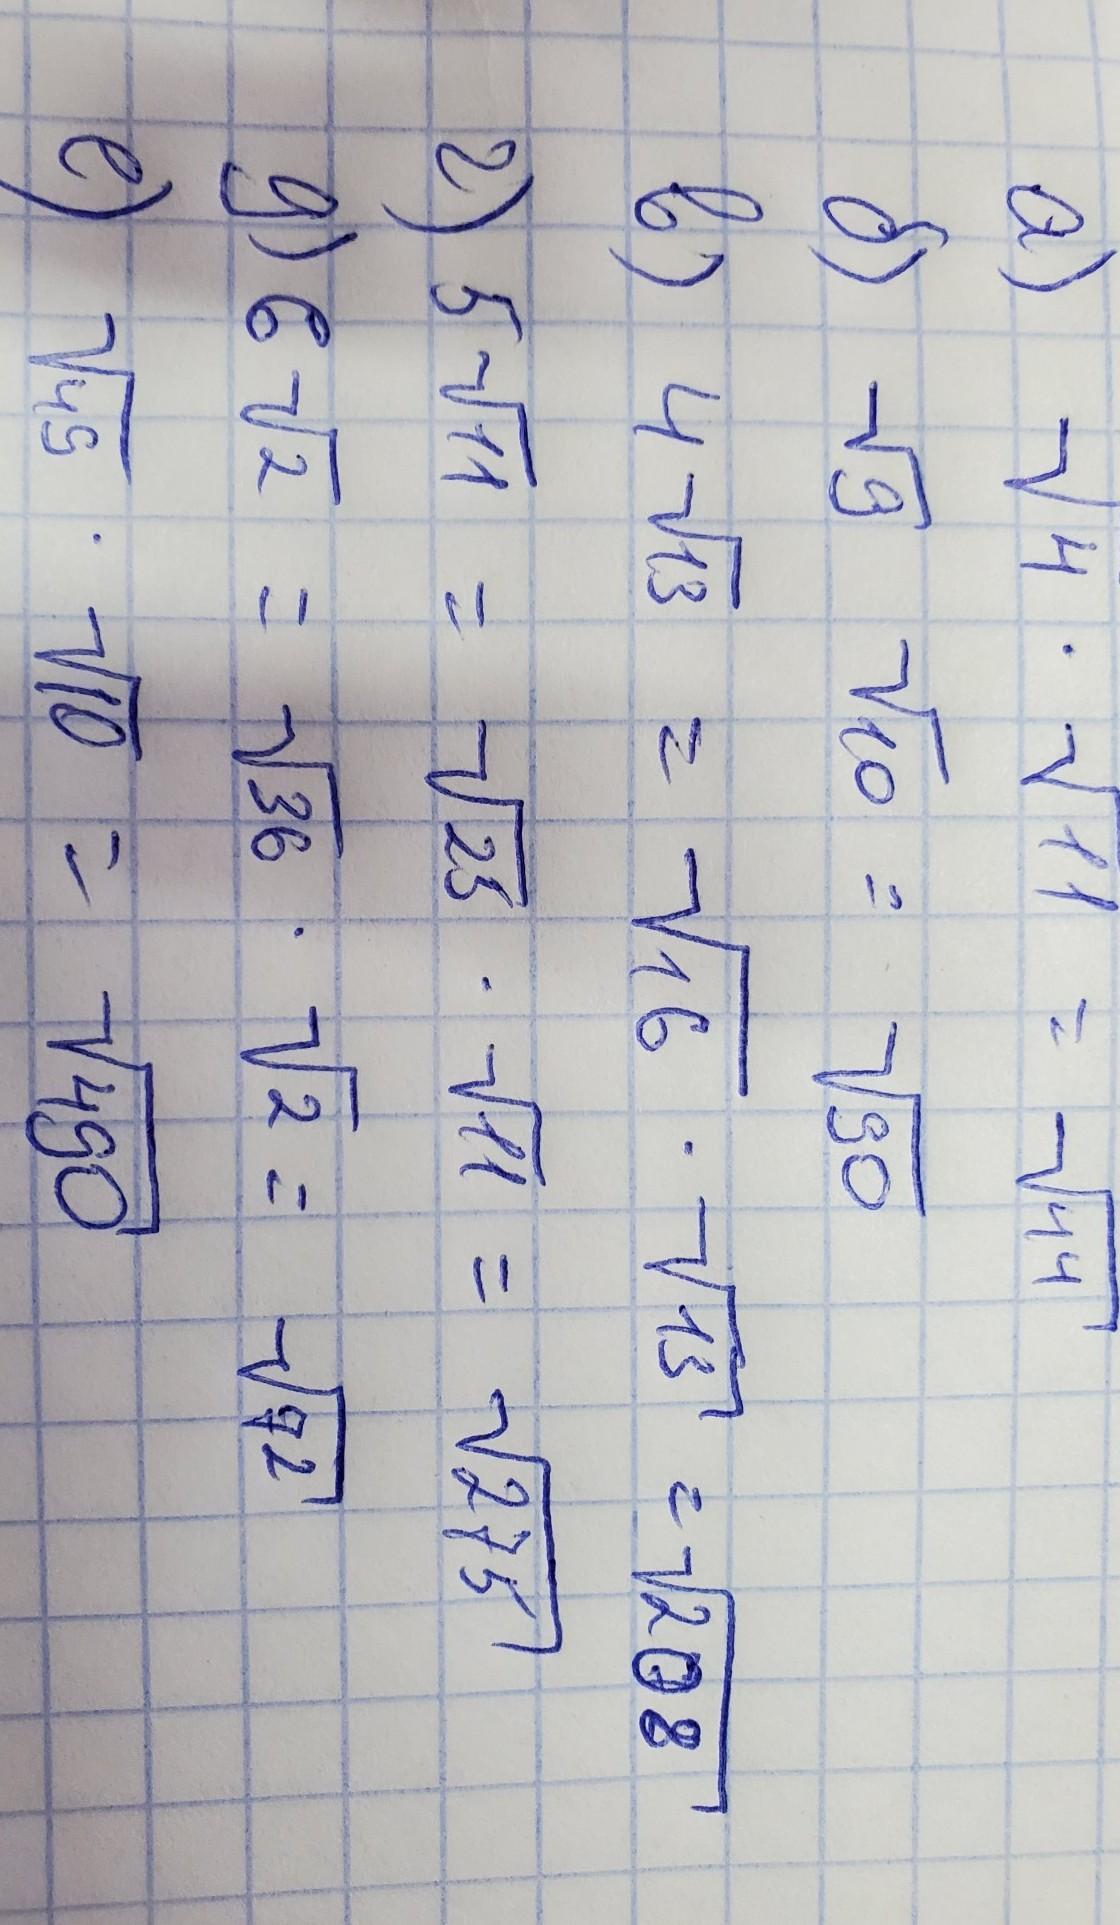 а) √4 · √11 = √44
б) √9 √10 = √90
в) 4√13 = √16 · √13 = √208
г) 5√11 = √25 · √11 = √275
д) 6√2 = √36 · √2 = √72
е) √49 · √10 = √490